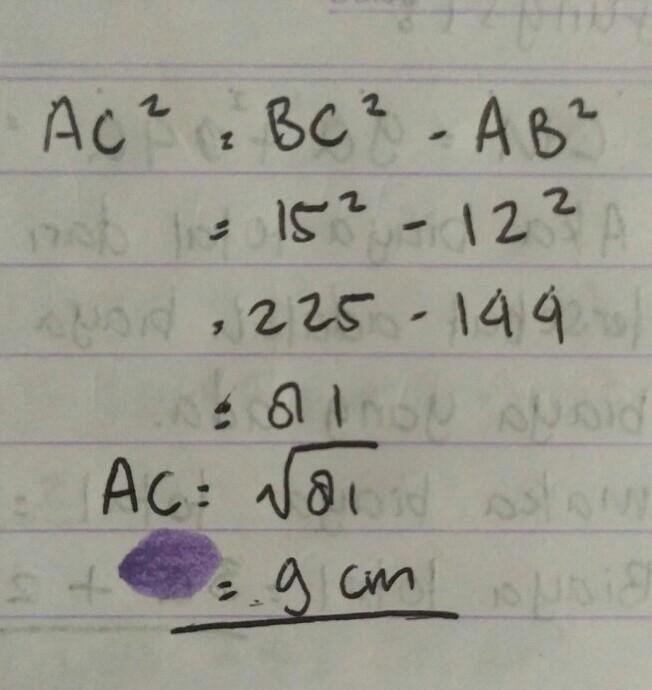 AC² = BC² - AB²
= 15² - 12²
= 225 - 144
= 81
AC = √81
= 9 cm